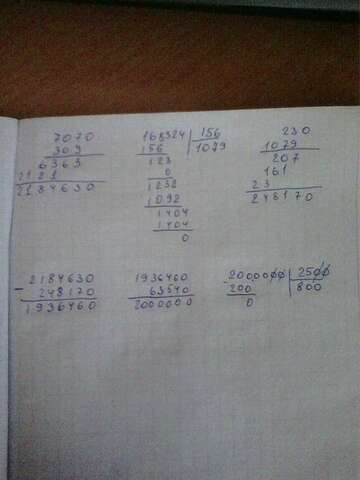 7070
309
6363
2121
2184630
168324 156
156 1079
123
0
1232
1092
1404
1404
0
230
1079
207
161
23
248170
- 2184630
248170
1936460
1936460
63540
2000000
- 2000000 2500
200 800
0